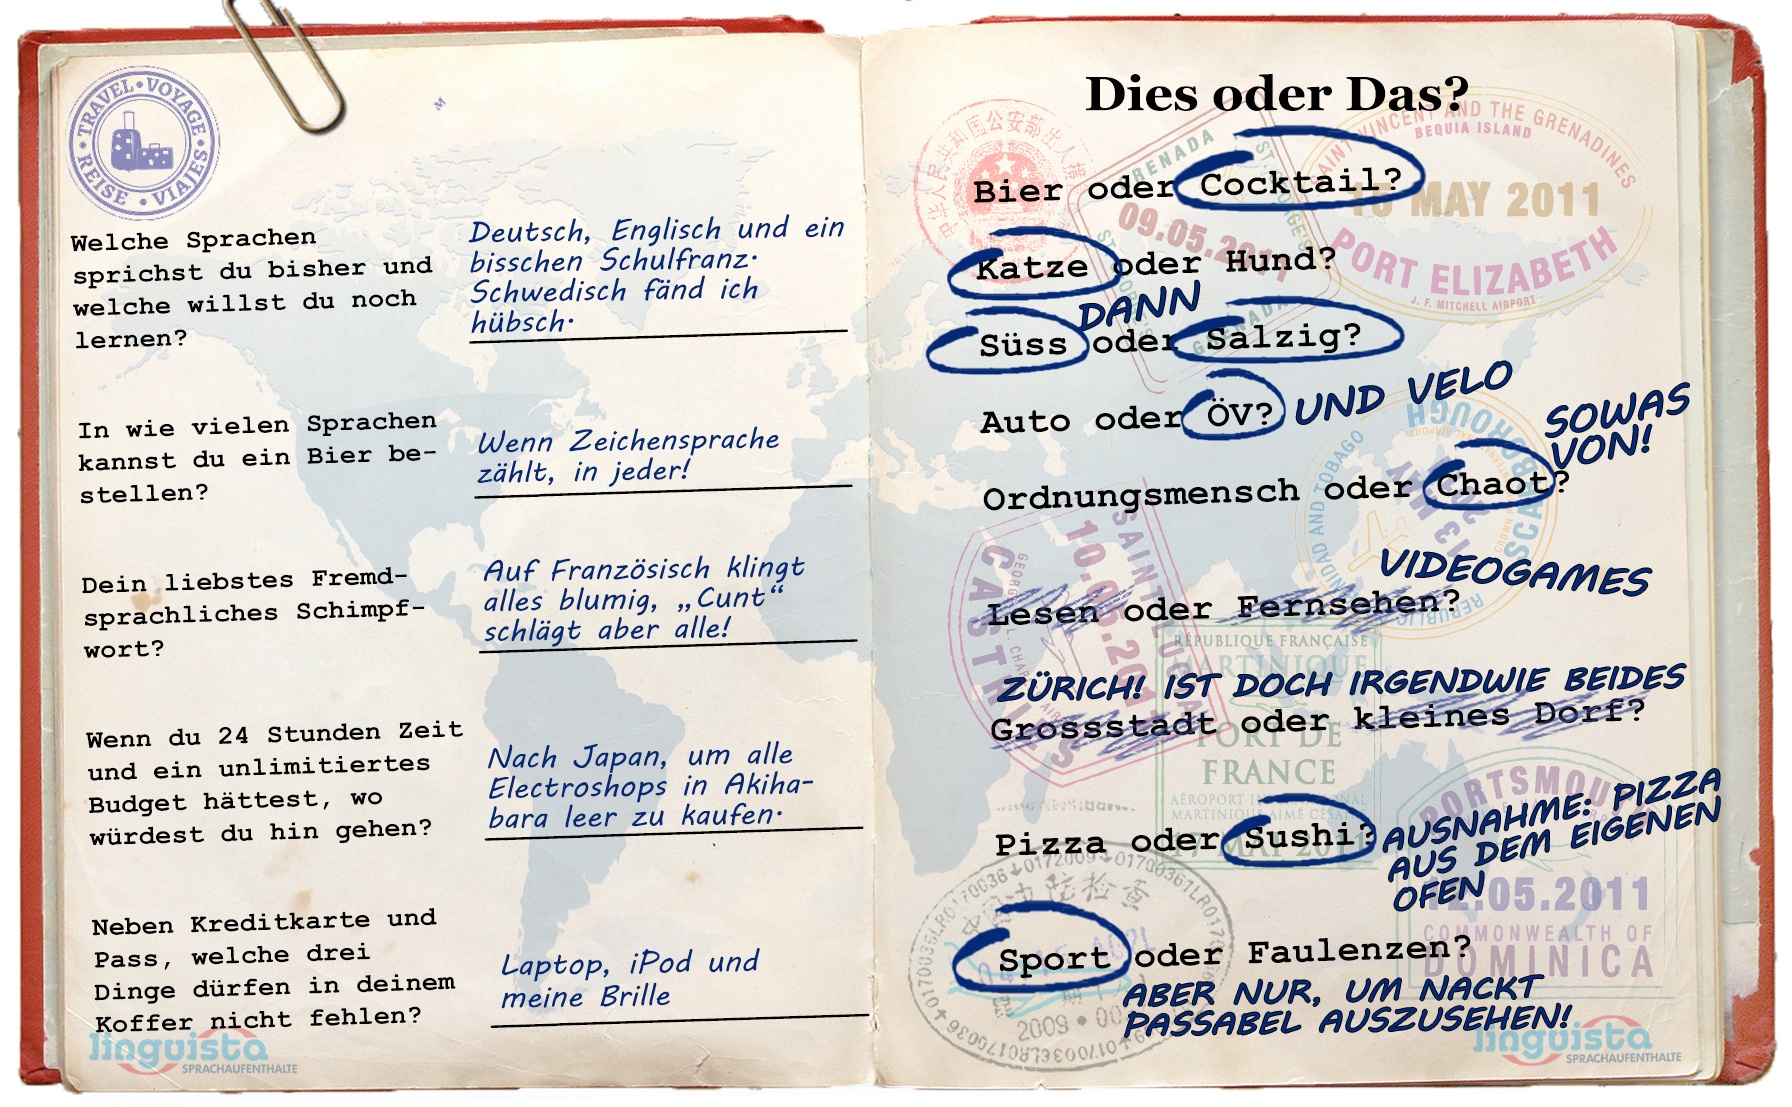 TRAVEL • VOYAGE • VIAJES • REISE •
Welche Sprachen
sprichst du bisher und
welche willst du noch
lernen?
Deutsch, Englisch und ein
bisschen Schulfranz.
Schwedisch fänd ich
hübsch.
In wie vielen Sprachen
kannst du ein Bier be-
stellen?
Wenn Zeichensprache
zählt, in jeder!
Dein liebstes Fremd-
sprachliches Schimpf-
wort?
Auf Französisch klingt
alles blumig, „Cunt“
schlägt aber alle!
Wenn du 24 Stunden Zeit
und ein unlimitiertes
Budget hättest, wo
würdest du hin gehen?
Nach Japan, um alle
Electroshops in Akiha-
bara leer zu kaufen.
Neben Kreditkarte und
Pass, welche drei
Dinge dürfen in deinem
Koffer nicht fehlen?
Laptop, iPod und
meine Brille
linguista
SPRACHAUFENTHALTE
Dies oder Das?
Bier oder Cocktail?
Katze oder Hund?
DANN
Süss oder Salzig?
Auto oder ÖV? UND VELO
SOWAS
VON!
Ordnungsmensch oder Chaot?
VIDEOGAMES
Lesen oder Fernsehen?
ZÜRICH! IST DOCH IRGENDWIE BEIDES
Grossstadt oder kleines Dorf?
Pizza oder Sushi?
AUSNAHME: PIZZA
AUS DEM EIGENEN
OFEN
Sport oder Faulenzen?
ABER NUR, UM NACKT
PASSABEL AUSZUSEHEN!
linguista
SPRACHAUFENTHALTE
GRENADA
09.05.2011
SAINT VINCENT AND THE GRENADINES
BEQUIA ISLAND
MAY 2011
PORT ELIZABETH
J. F. MITCHELL AIRPORT
SCARBOROUGH
CASTRIES
RÉPUBLIQUE FRANÇAISE
MARTINIQUE
FORT DE
FRANCE
PORTSMOUTH
12.05.2011
COMMONWEALTH OF
DOMINICA